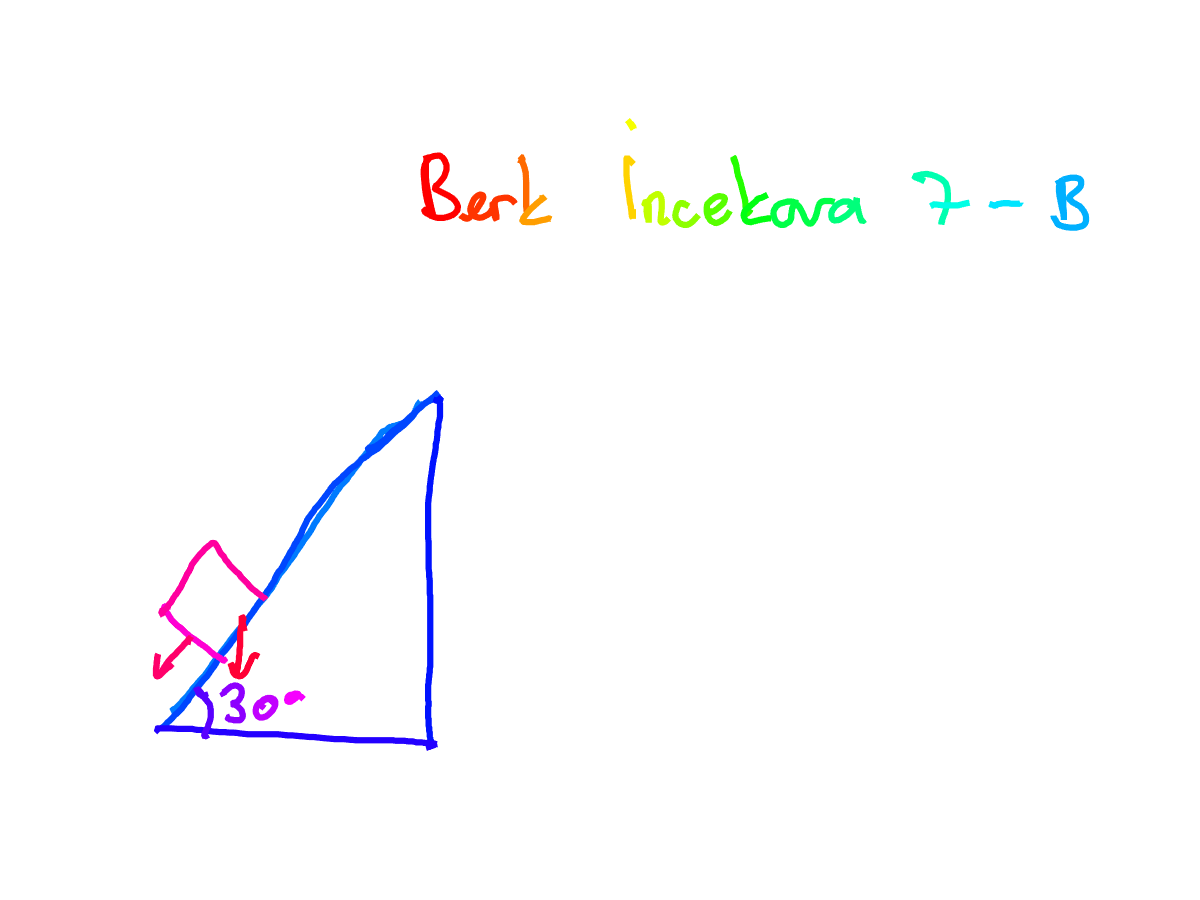 Berk İncekova 7-B
30°